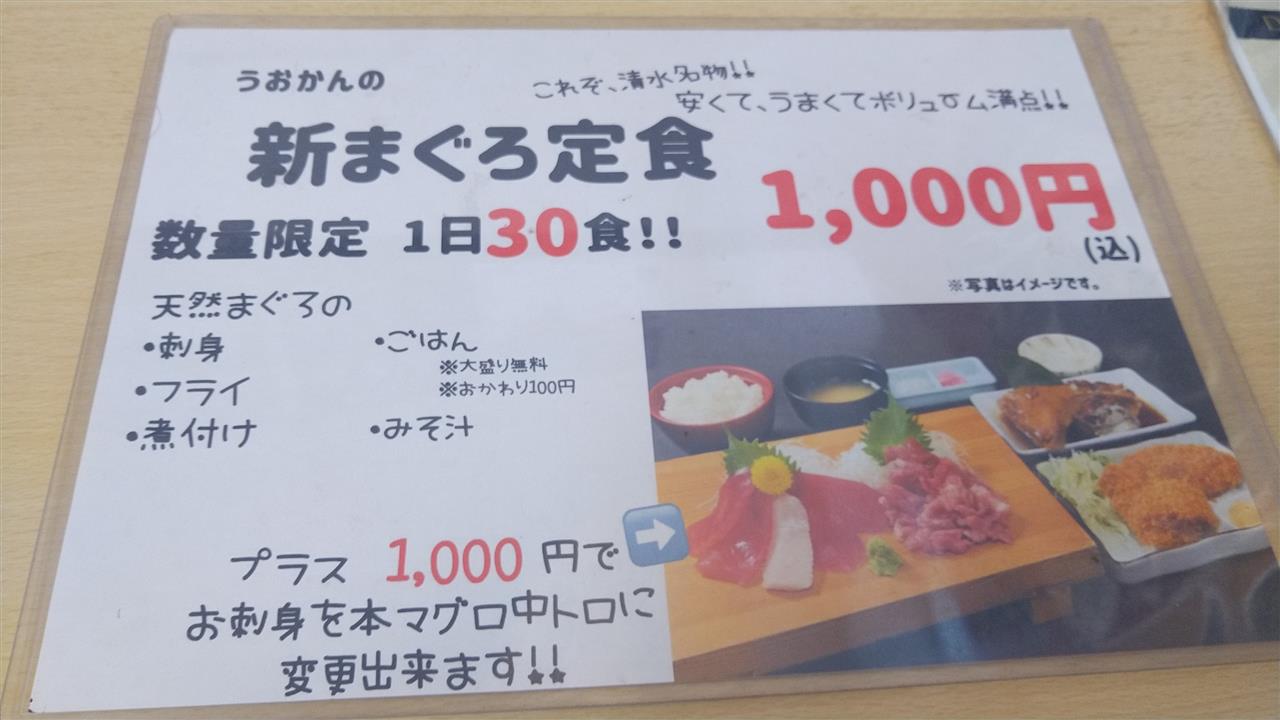 うおかんの
これぞ、清水名物!!
安くて、うまくてボリューム満点!!
新まぐろ定食
1,000円
(込)
数量限定 1日30食!!
※写真はイメージです。
天然まぐろの
・刺身
・フライ
・煮付け
・ごはん
※大盛り無料
※おかわり100円
・みそ汁
プラス 1,000 円で
お刺身を本マグロ中トロに
変更出来ます!!